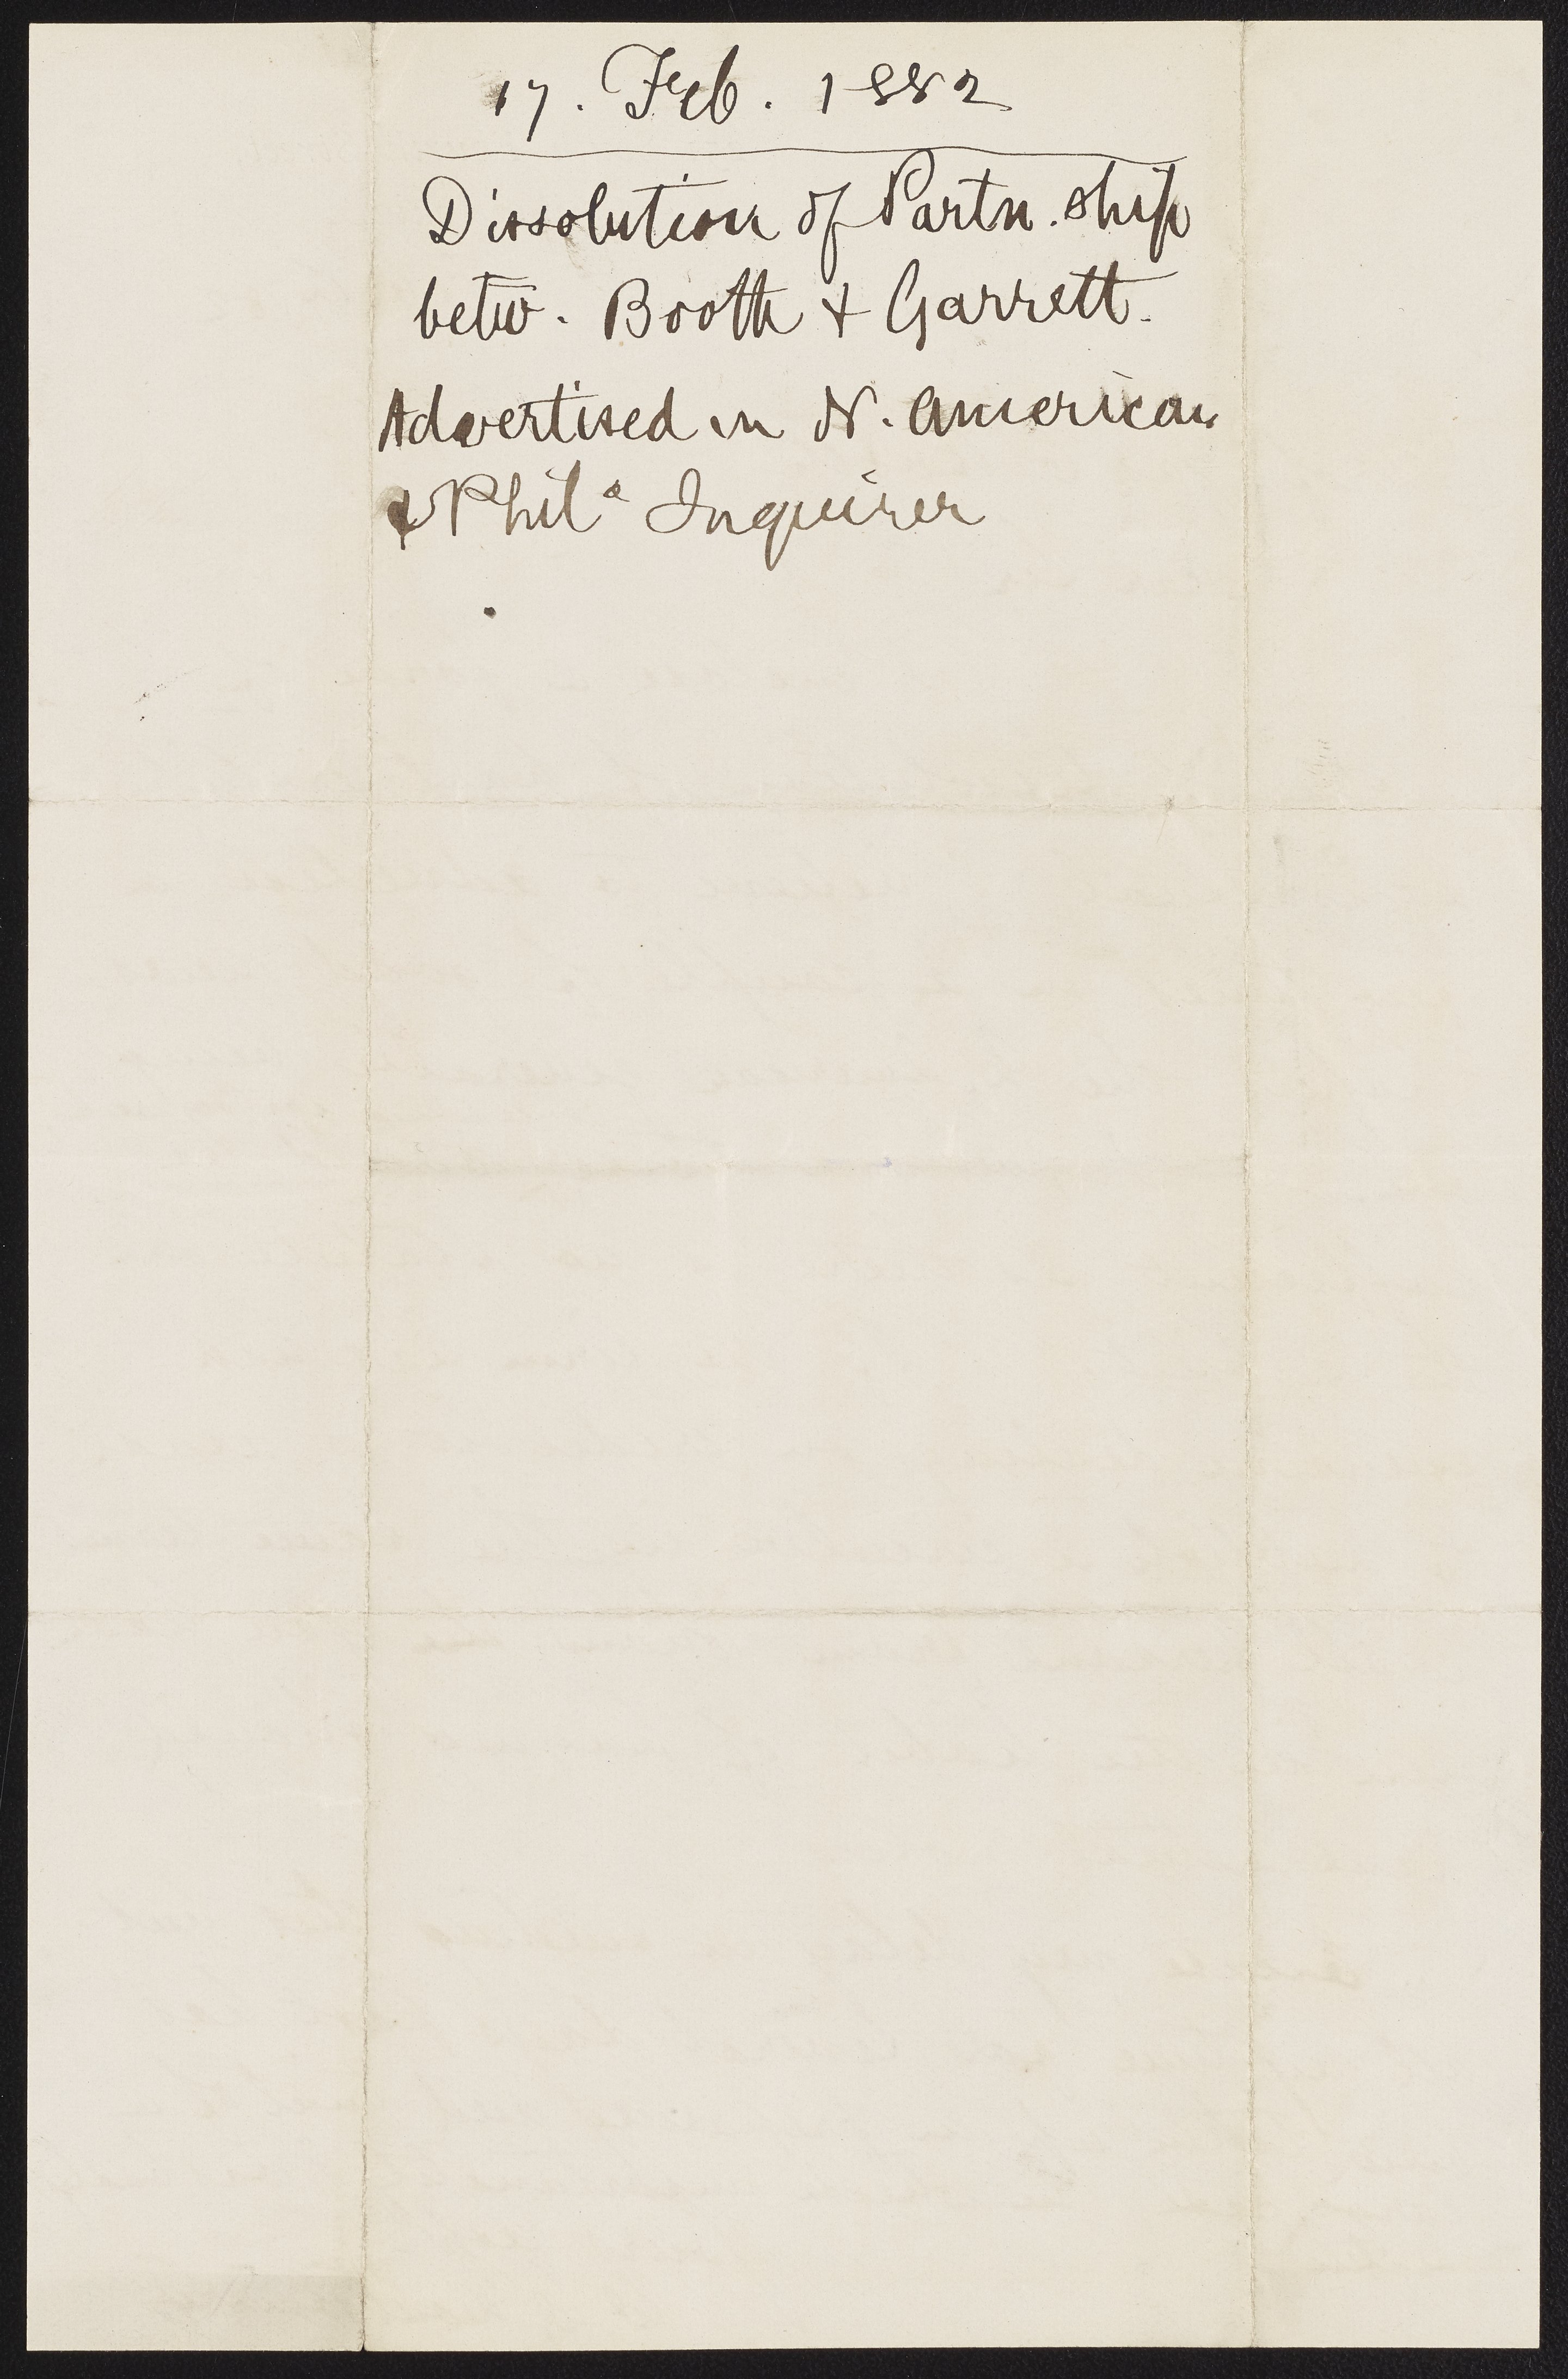 17. Feb. 1882
Dissolution of Partn.ship
betw. Booth & Garrett.
Advertised in N. American
& Phila Inquirer